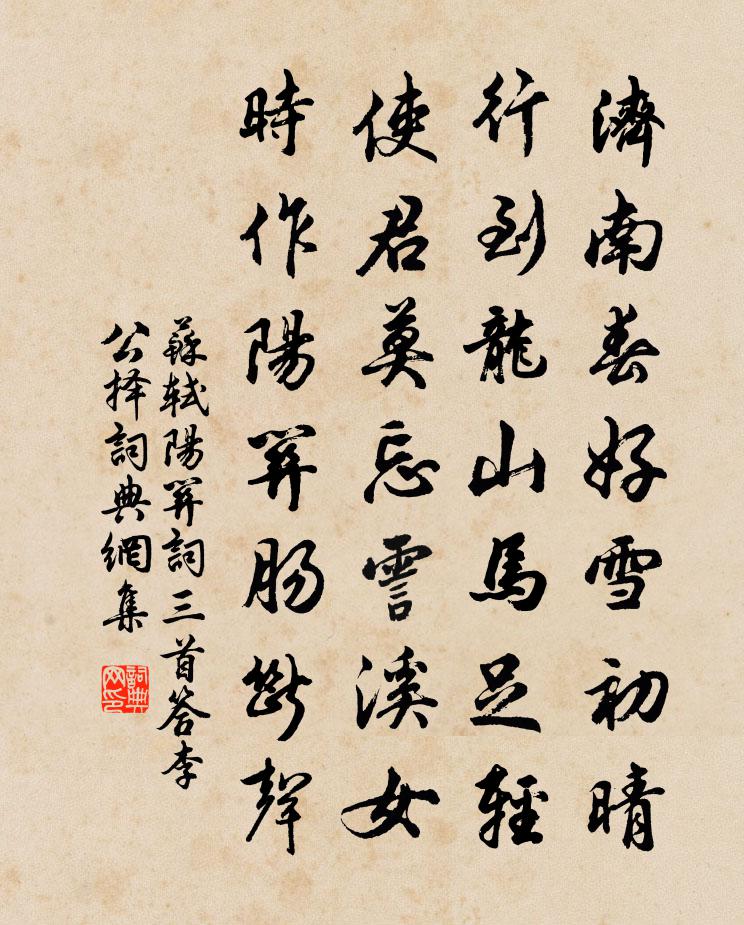 濟南春好雪初晴
行到龍山馬足輕
使君莫忘霅溪女
時作陽關腸斷聲
蘇軾陽關詞三首答李
公择詞典網集
詞典
网印